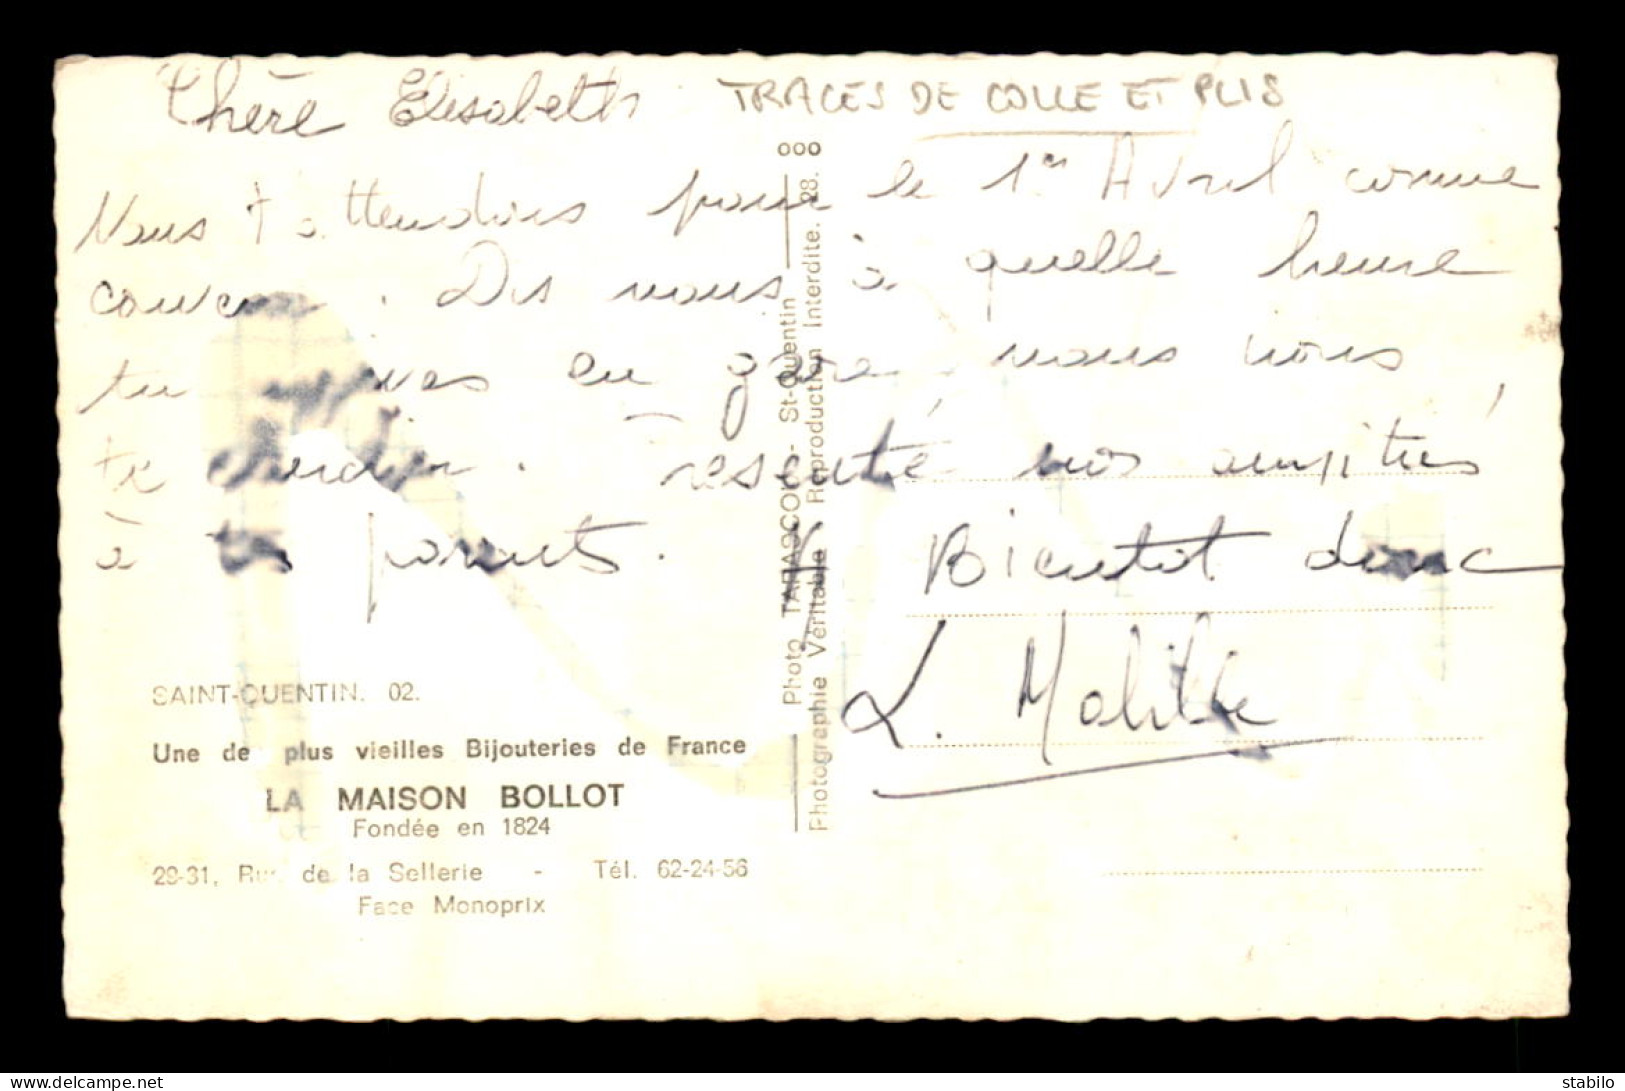 Chère Elisabeth TRACES DE COLLE ET PLIS
Nous t'attendons pour le 1er Avril comme
convenu. Dis nous à quelle heure
tu arrives en gare nous irons
te chercher. Présente nos amitiés
à tes parents. A Bientot donc
L.
SAINT-QUENTIN. 02.
Une de plus vieilles Bijouteries de France
LA MAISON BOLLOT
Fondée en 1824
29-31, Rue de la Sellerie - Tél. 62-24-56
Face Monoprix
ooo
Photo TARASCOU - St-Quentin
Photographie Véritable Reproduction Interdite. 28.
delcampe.net
stabilo